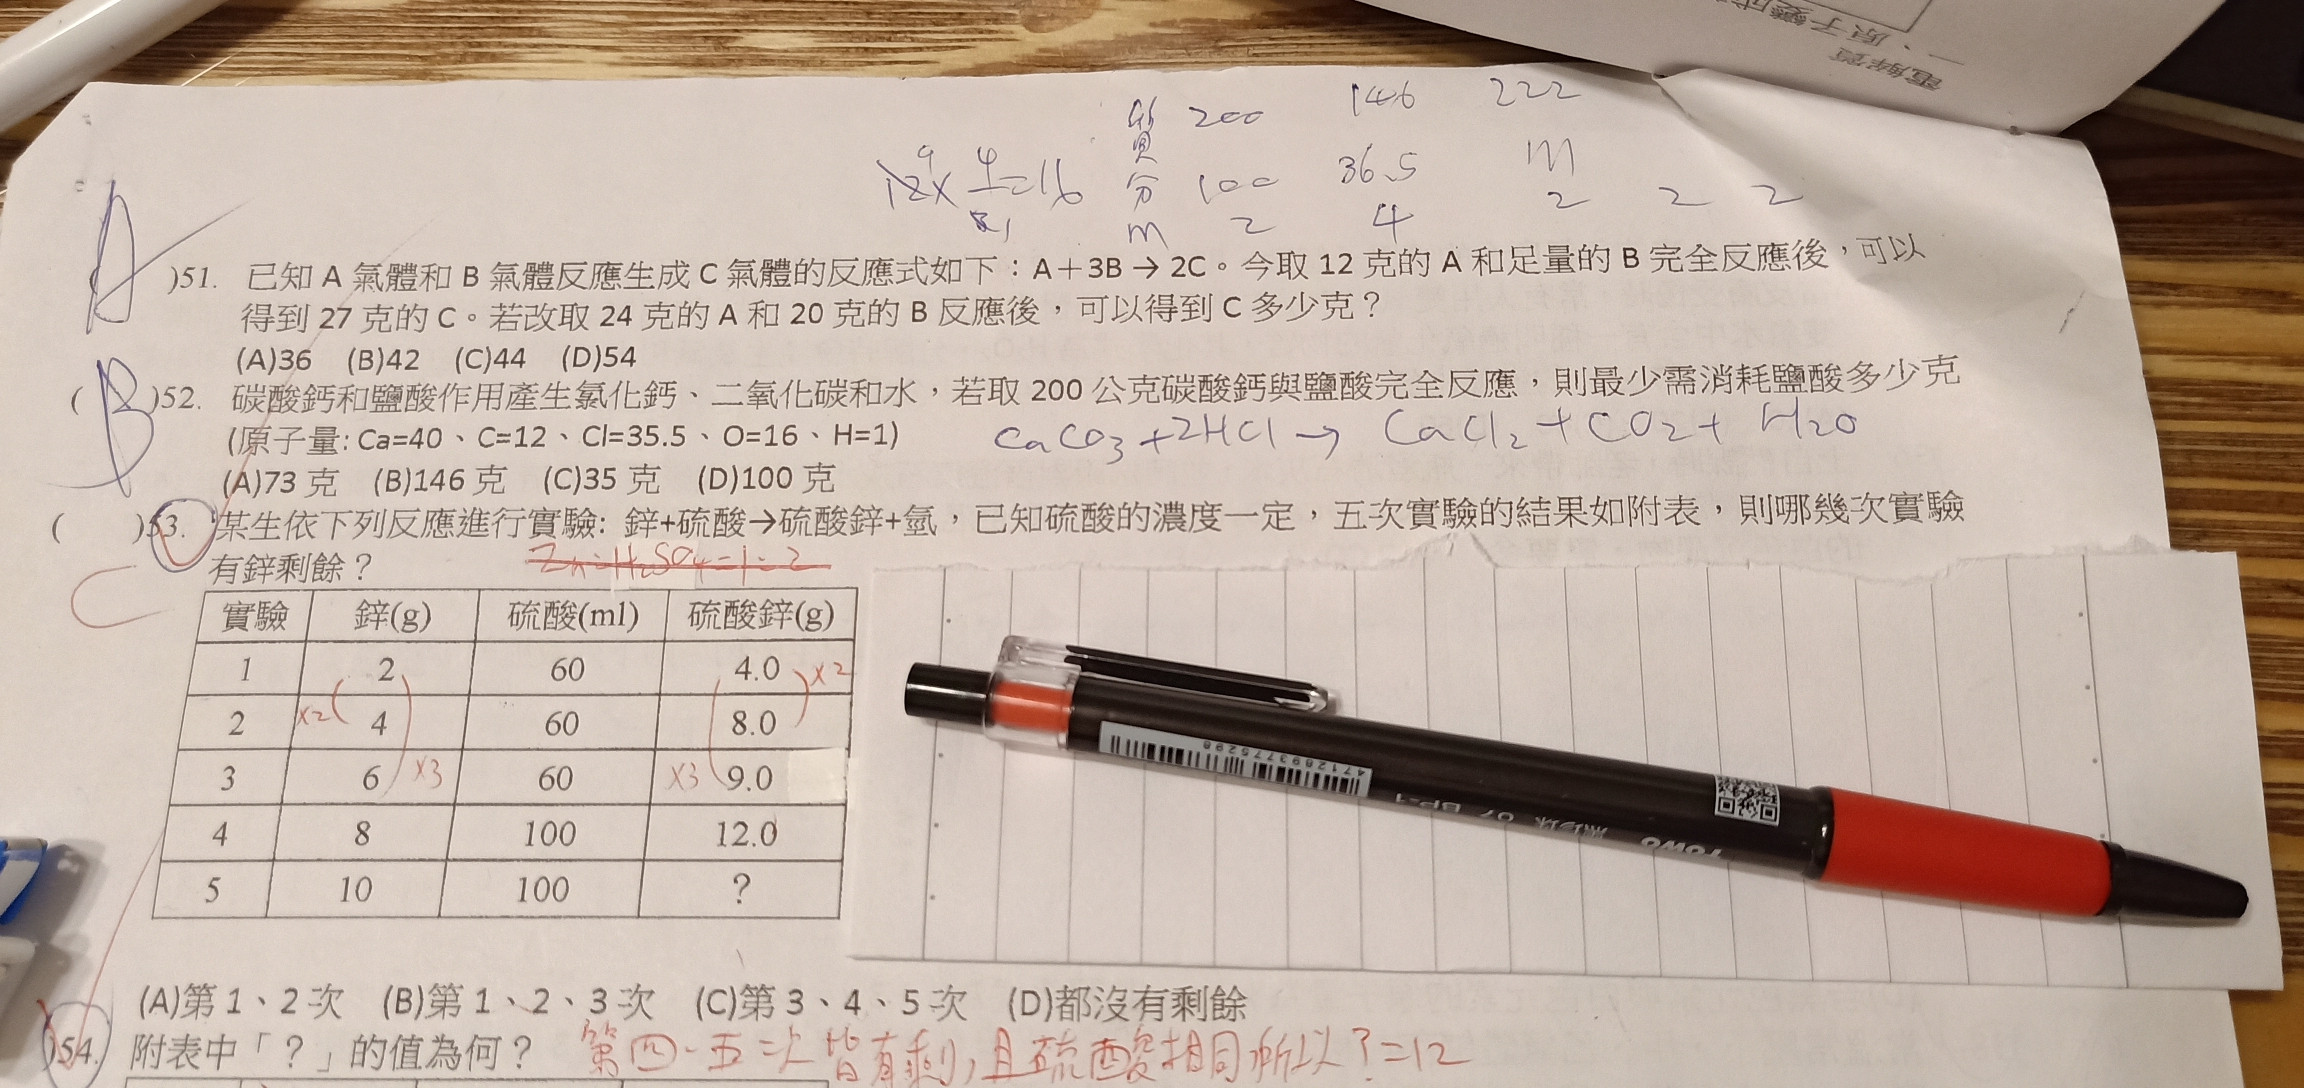 質 200 146 222
9
12× 4/1=16 分 100 36.5 111
m 2 4 2 2 2
A )51. 已知 A 氣體和 B 氣體反應生成 C 氣體的反應式如下：A＋3B → 2C。今取 12 克的 A 和足量的 B 完全反應後，可以
得到 27 克的 C。若改取 24 克的 A 和 20 克的 B 反應後，可以得到 C 多少克？
(A)36 (B)42 (C)44 (D)54
( B )52. 碳酸鈣和鹽酸作用產生氯化鈣、二氧化碳和水，若取 200 公克碳酸鈣與鹽酸完全反應，則最少需消耗鹽酸多少克
(原子量: Ca=40、C=12、Cl=35.5、O=16、H=1) CaCO3+2HCl→ CaCl2+CO2+ H2O
(A)73 克 (B)146 克 (C)35 克 (D)100 克
( )53. 某生依下列反應進行實驗: 鋅+硫酸→硫酸鋅+氫，已知硫酸的濃度一定，五次實驗的結果如附表，則哪幾次實驗
有鋅剩餘？ Zn:H2SO4=1:2
C
實驗 鋅(g) 硫酸(ml) 硫酸鋅(g)
1 2 60 4.0 ×2
2 ×2 4 60 8.0
3 6 ×3 60 ×3 9.0
4 8 100 12.0
5 10 100 ?
(A)第 1、2 次 (B)第 1、2、3 次 (C)第 3、4、5 次 (D)都沒有剩餘
)54. 附表中「？」的值為何？ 第四、五次皆有剩,且硫酸相同所以?=12
4712893775298
電解質